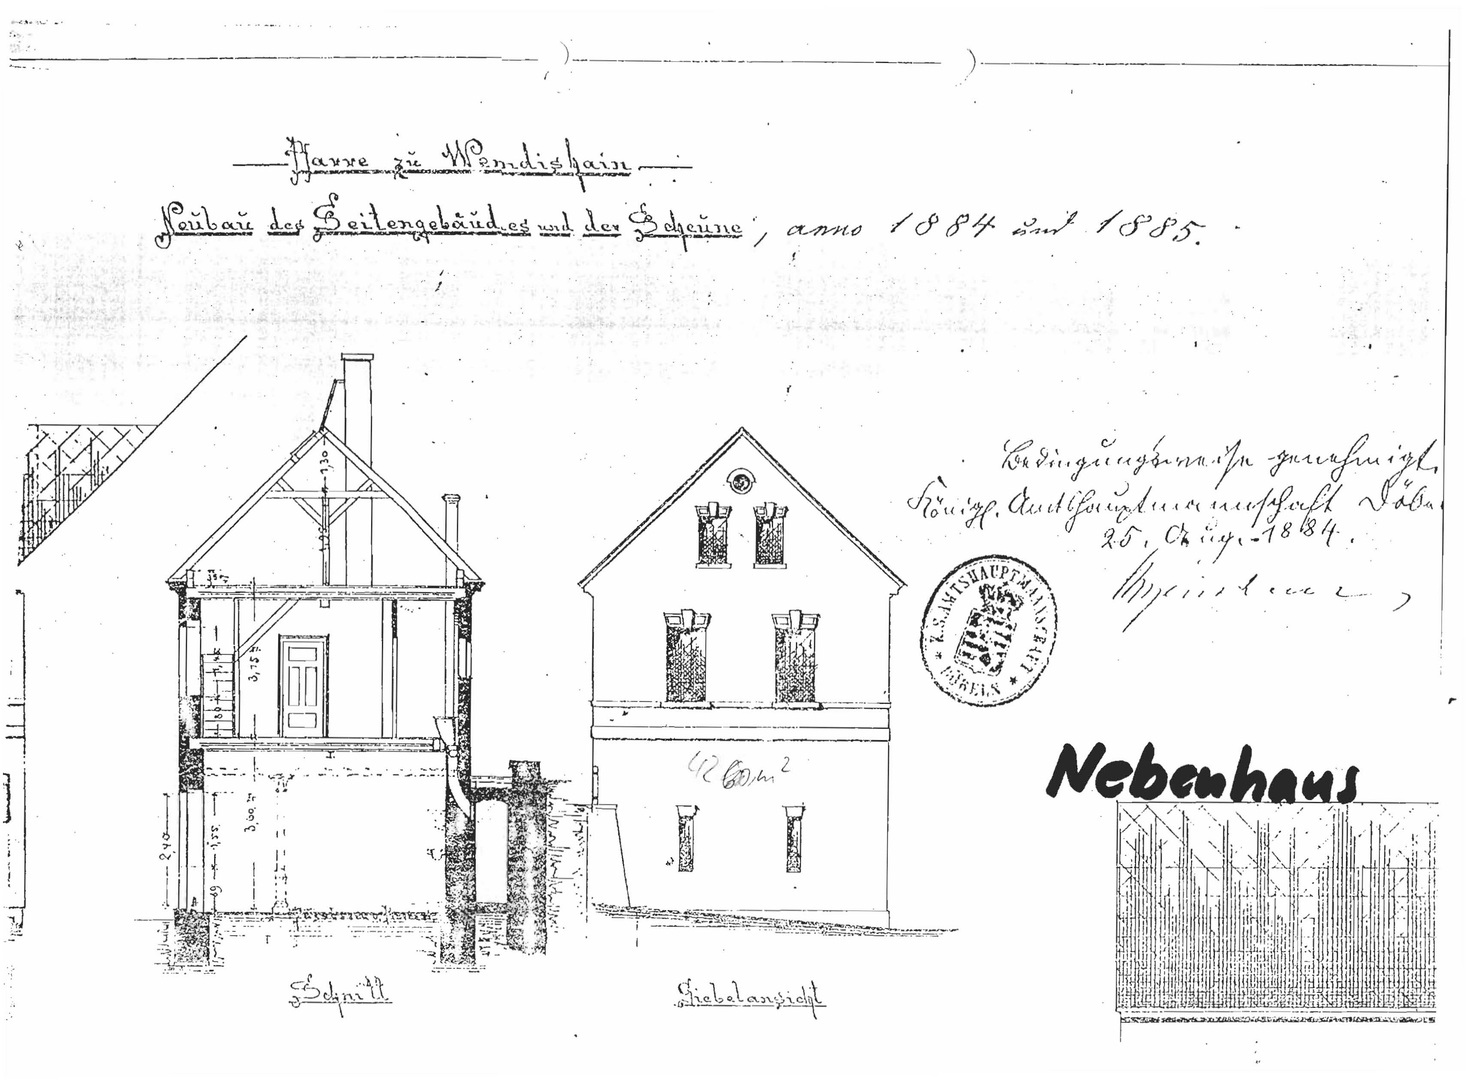 Pfarre zu Wendishain
Neubau des Seitengebäudes und der Scheune, anno 1884 und 1885.
Bedingungsweise genehmigt.
Königl. Amtshauptmannschaft Döbe
25. Aug. 1884.
K.S. AMTSHAUPTMANNSCHAFT
* DÖBELN *
Nebenhaus
1,30
3,15
80
3,00
2,40
1,55
Schnitt
Giebelansicht